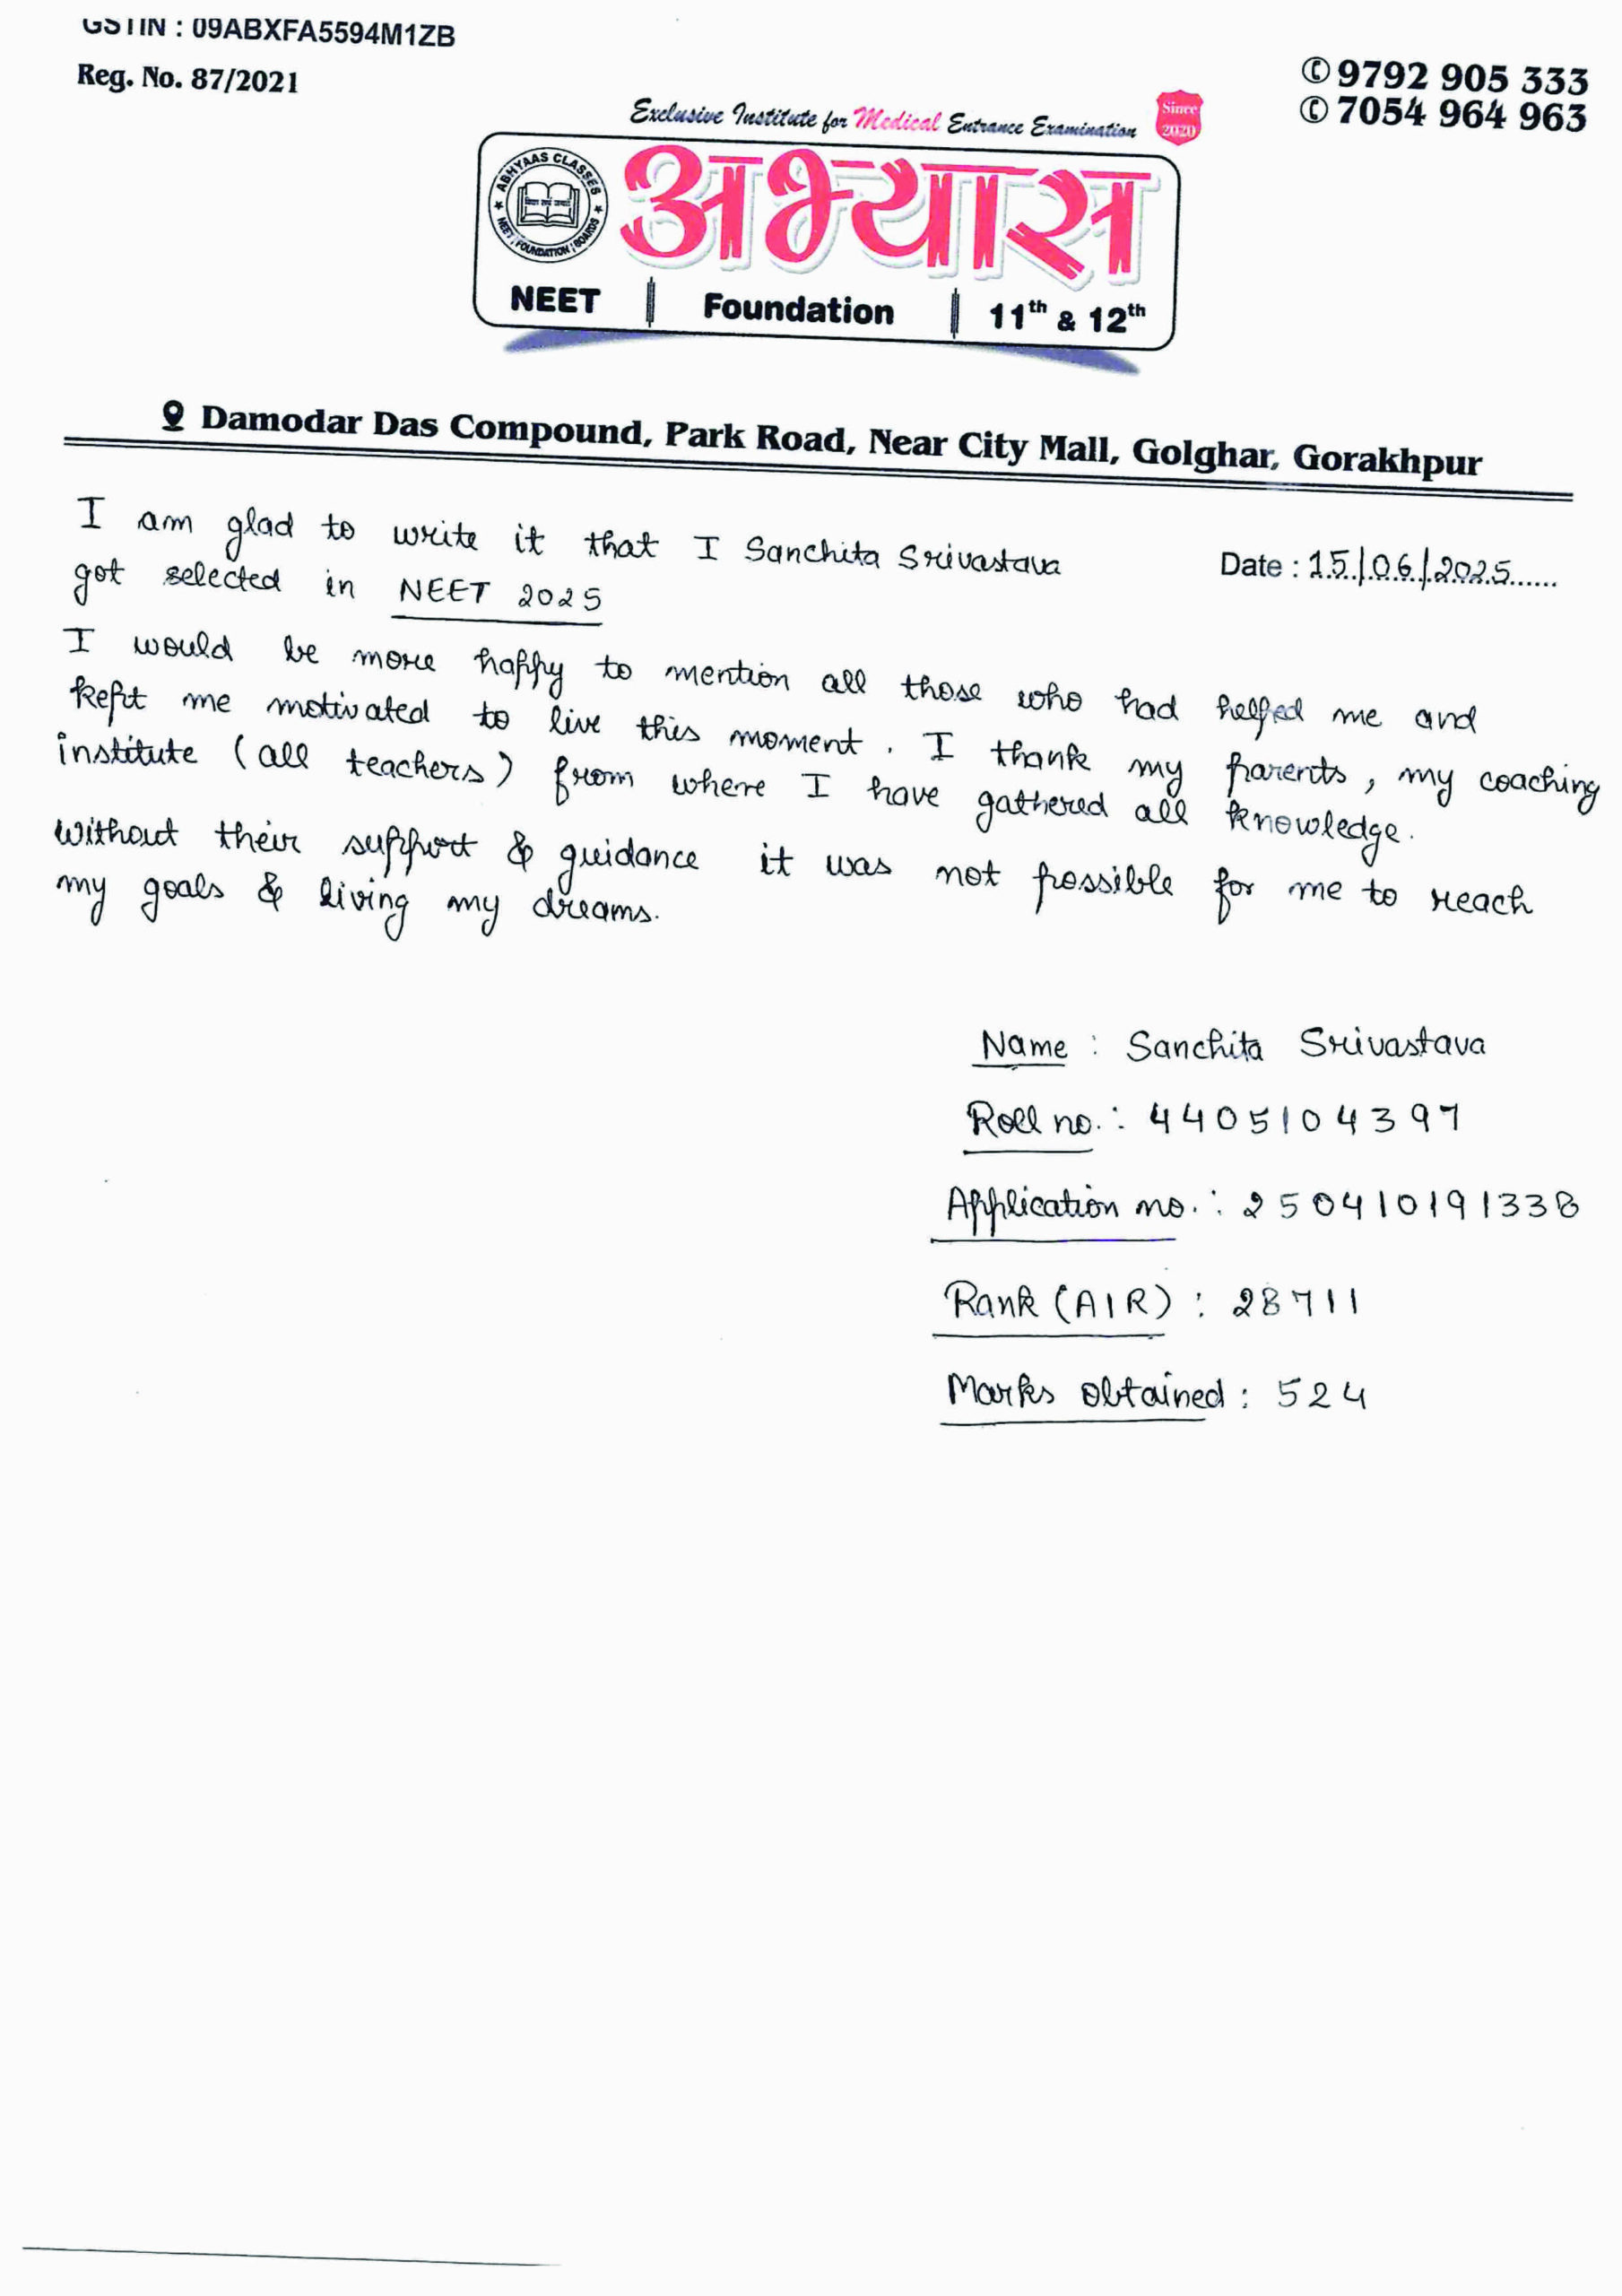 GSTIN : 09ABXFA5594M1ZB
Reg. No. 87/2021
✆ 9792 905 333
✆ 7054 964 963
Exclusive Institute for Medical Entrance Examination
Since 2020
ABHYAAS CLASSES
NEET | FOUNDATION | BOARDS
अभ्यास
NEET | Foundation | 11th & 12th
Damodar Das Compound, Park Road, Near City Mall, Golghar, Gorakhpur
Date : 15/06/2025
I am glad to write it that I Sanchita Srivastava
got selected in NEET 2025
I would be more happy to mention all those who had helped me and
kept me motivated to live this moment. I thank my parents, my coaching
institute (all teachers) from where I have gathered all knowledge.
Without their support & guidance it was not possible for me to reach
my goals & living my dreams.
Name : Sanchita Srivastava
Roll no. : 4405104397
Application no. : 250410191338
Rank (AIR) : 28711
Marks obtained : 524